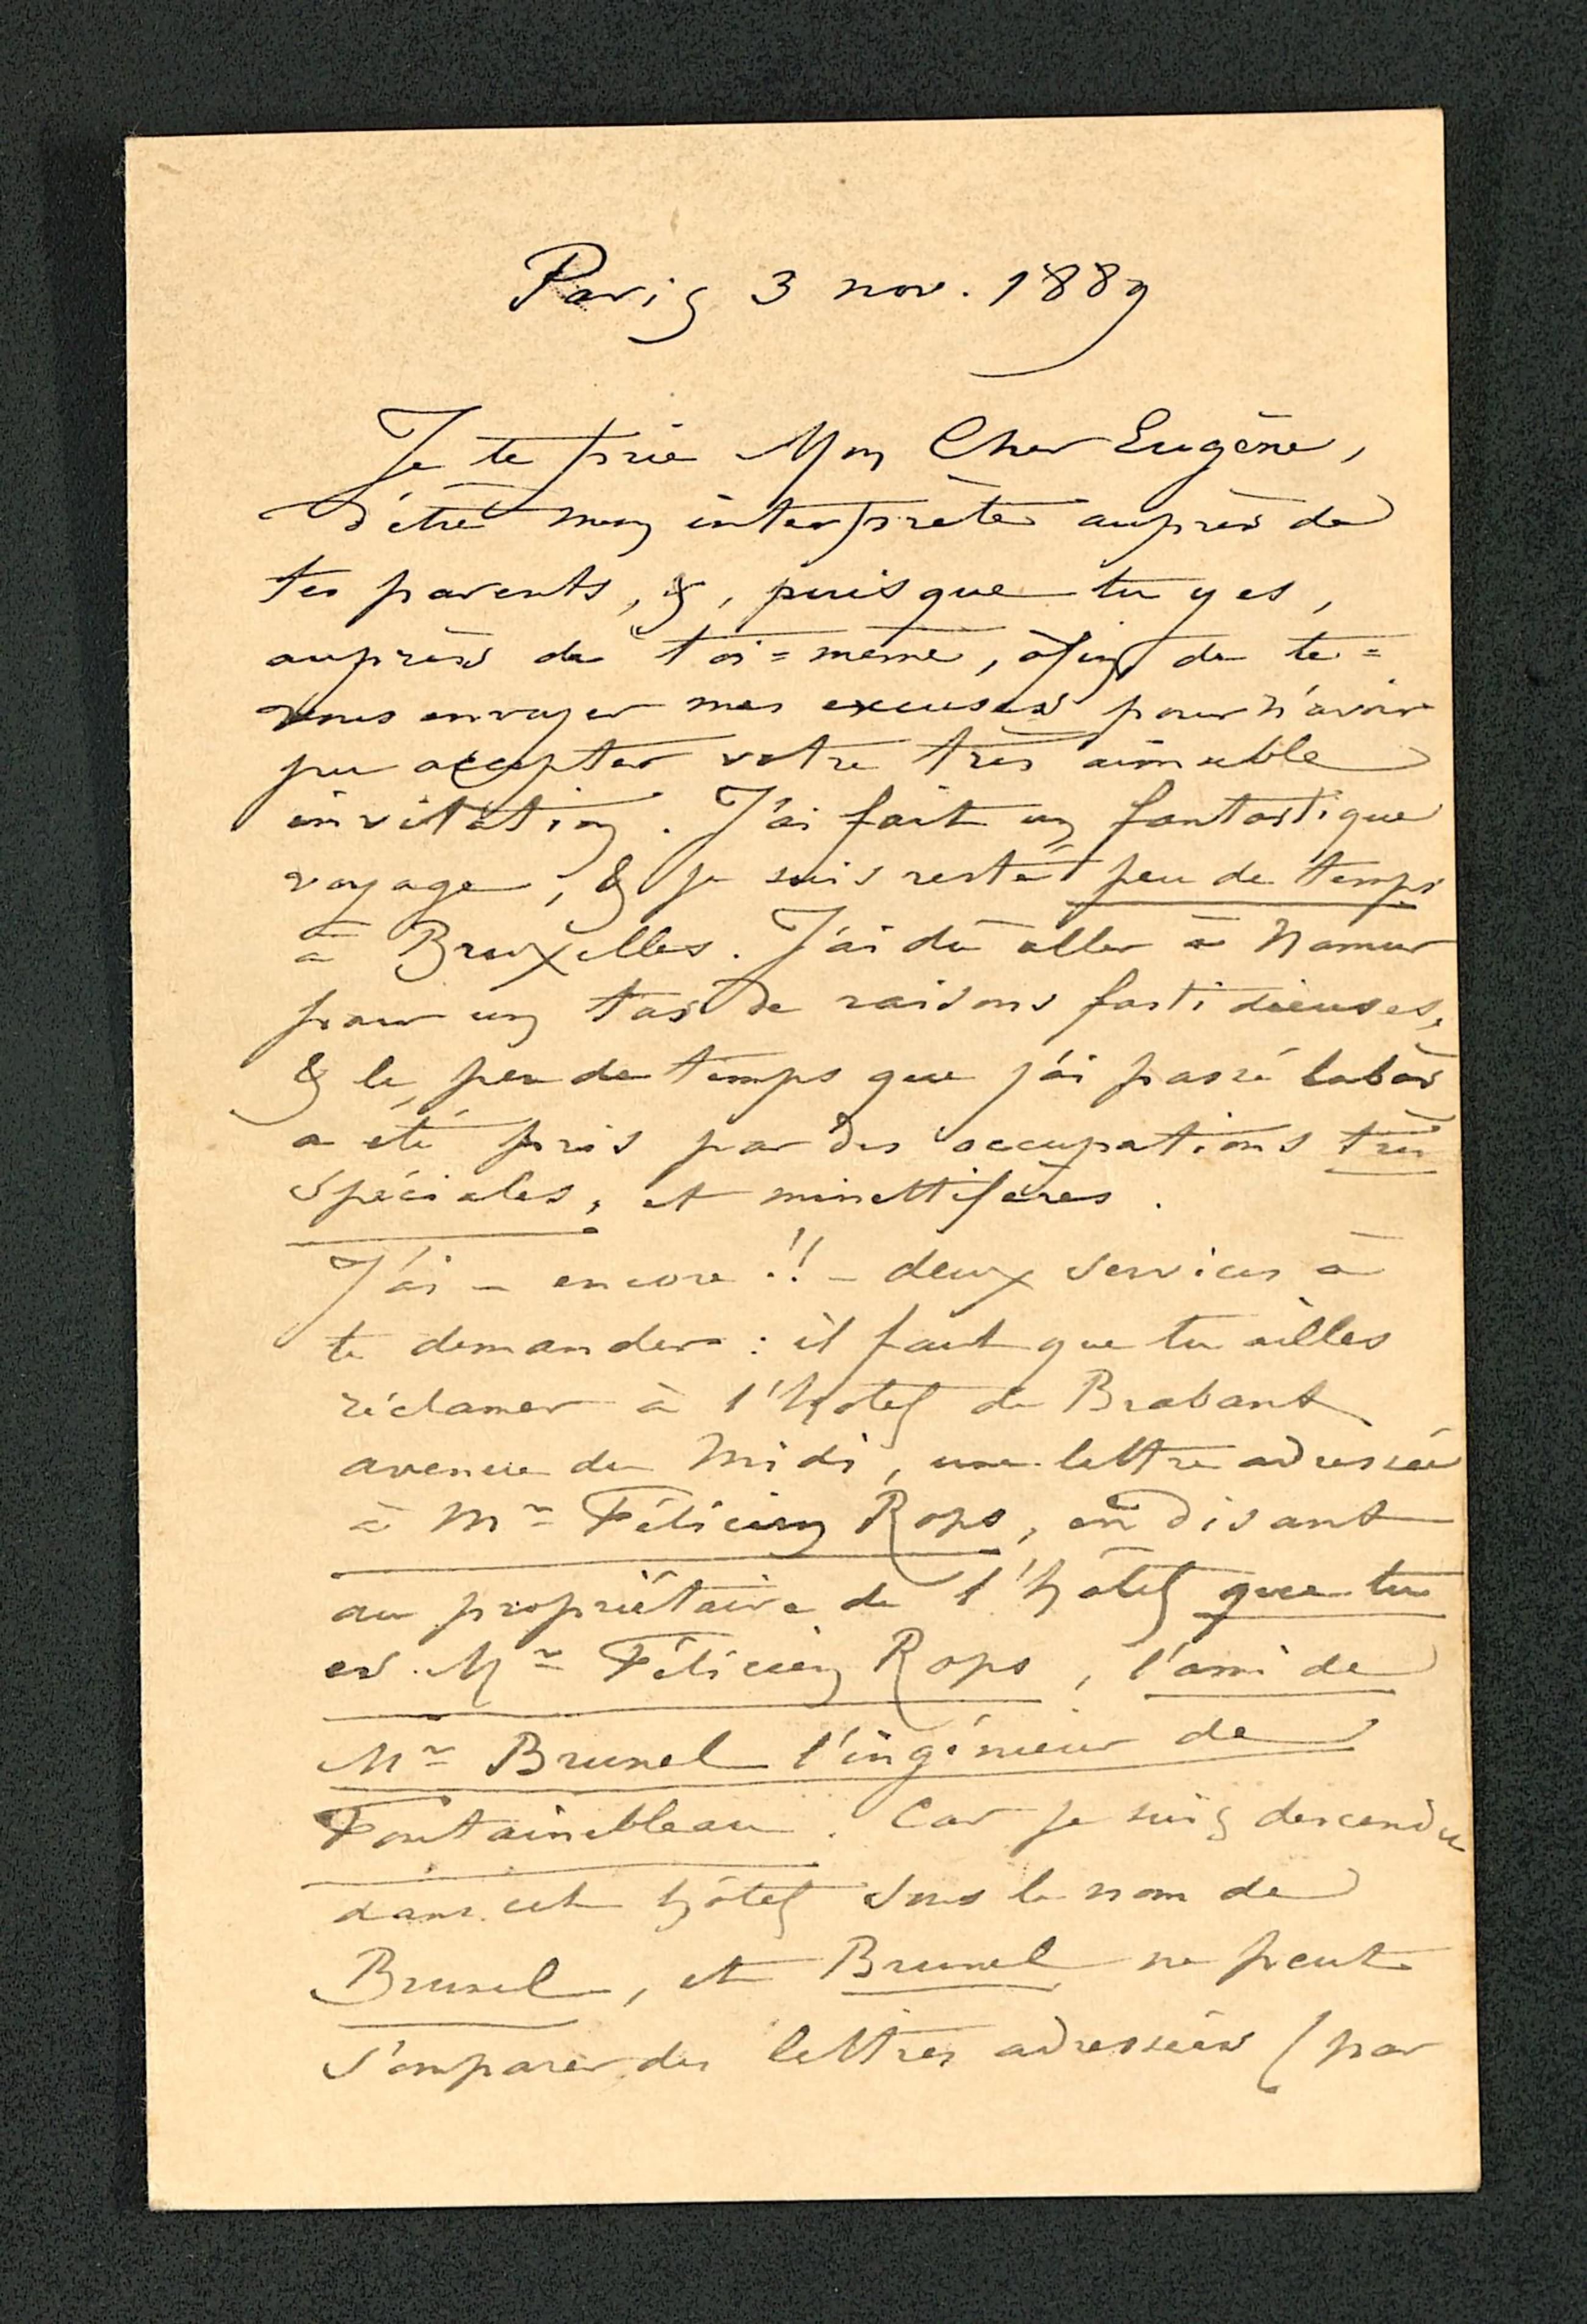 Paris 3 nov. 1889
Je te prie Mon Cher Eugène,
d'être mon interprète auprès de
tes parents, &, puisque tu y es,
auprès de toi=même, afin de te=
vous envoyer mes excuses pour n'avoir
pu accepter votre très aimable
invitation. J'ai fait un fantastique
voyage, & je suis resté peu de temps
à Bruxelles. J'ai dû aller à Namur
pour un tas de raisons fastidieuses,
& le peu de temps que j'ai passé labàs
a été pris par des occupations très
spéciales, et minettifères.
J'ai – encore !! – deux services à
te demander : il faut que tu ailles
réclamer à l'hotel de Brabant
avenue du Midi, une lettre adressée
à Mr Félicien Rops, en disant
au propriétaire de l'hôtel que tu
es Mr Félicien Rops, l'ami de
Mr Brunel l'ingénieur de
Fontainebleau. Car je suis descendu
dans cet hôtel sous le nom de
Brunel, et Brunel ne peut
s'emparer des lettres adressées (par